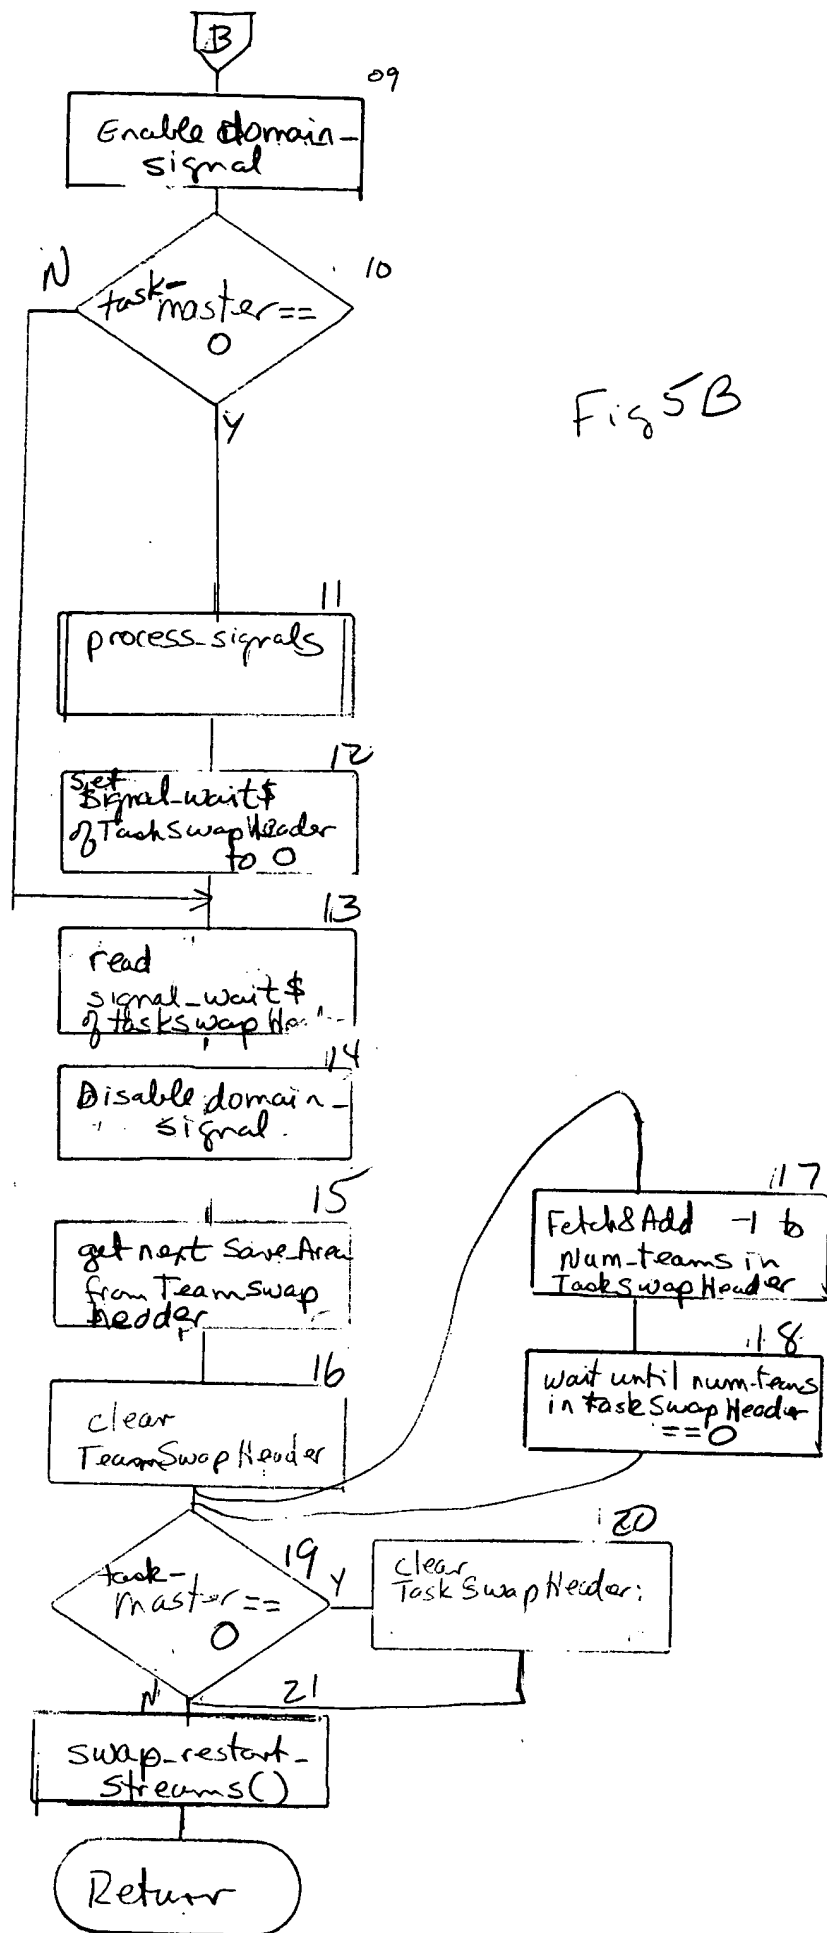 B
09
Enable domain-
signal
N
10
task-
master==
0
Y
Fig 5B
11
process_signals
12
set
signal_wait$
of TaskSwapHeader
to 0
13
read
signal_wait$
of taskSwapHe
14
Disable domain-
signal
15
get next Save_Area
from TeamSwap
hedder
16
clear
TeamSwapHeader
17
Fetch&Add -1 to
Num_teams in
TaskSwapHeader
18
wait until num_teams
in taskSwapHeader
==0
19
task-
master==
0
Y
20
clear
TaskSwapHeader:
N
21
swap_restart_
streams()
Return